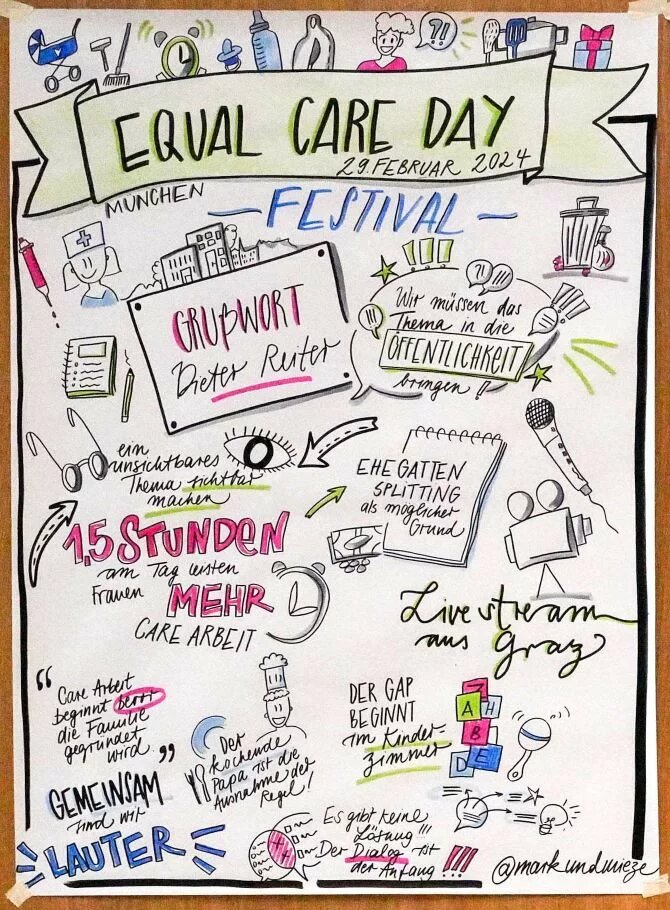 ?!
EQUAL CARE DAY
29. FEBRUAR 2024
MÜNCHEN
— FESTIVAL —
GRUßWORT
Dieter Reiter
!!!
?!
!!!
Wir müssen das
Thema in die
ÖFFENTLICHKEIT
bringen!
ein
unsichtbares
Thema sichtbar
machen
EHEGATTEN
SPLITTING
als möglicher
Grund
1,5 STUNDEN
am Tag leisten
Frauen MEHR
CARE ARBEIT
Livestream
aus Graz
"Care Arbeit
beginnt bevor
die Familie
gegründet
wird."
Der
kochende
Papa ist die
Ausnahme der
Regel!
DER GAP
BEGINNT
im Kinder-
zimmer
A H
B
D E
GEMEINSAM
sind wir
LAUTER
Es gibt keine
Lösung!!!
Der Dialog ist
der Anfang!!!
@markundwieze